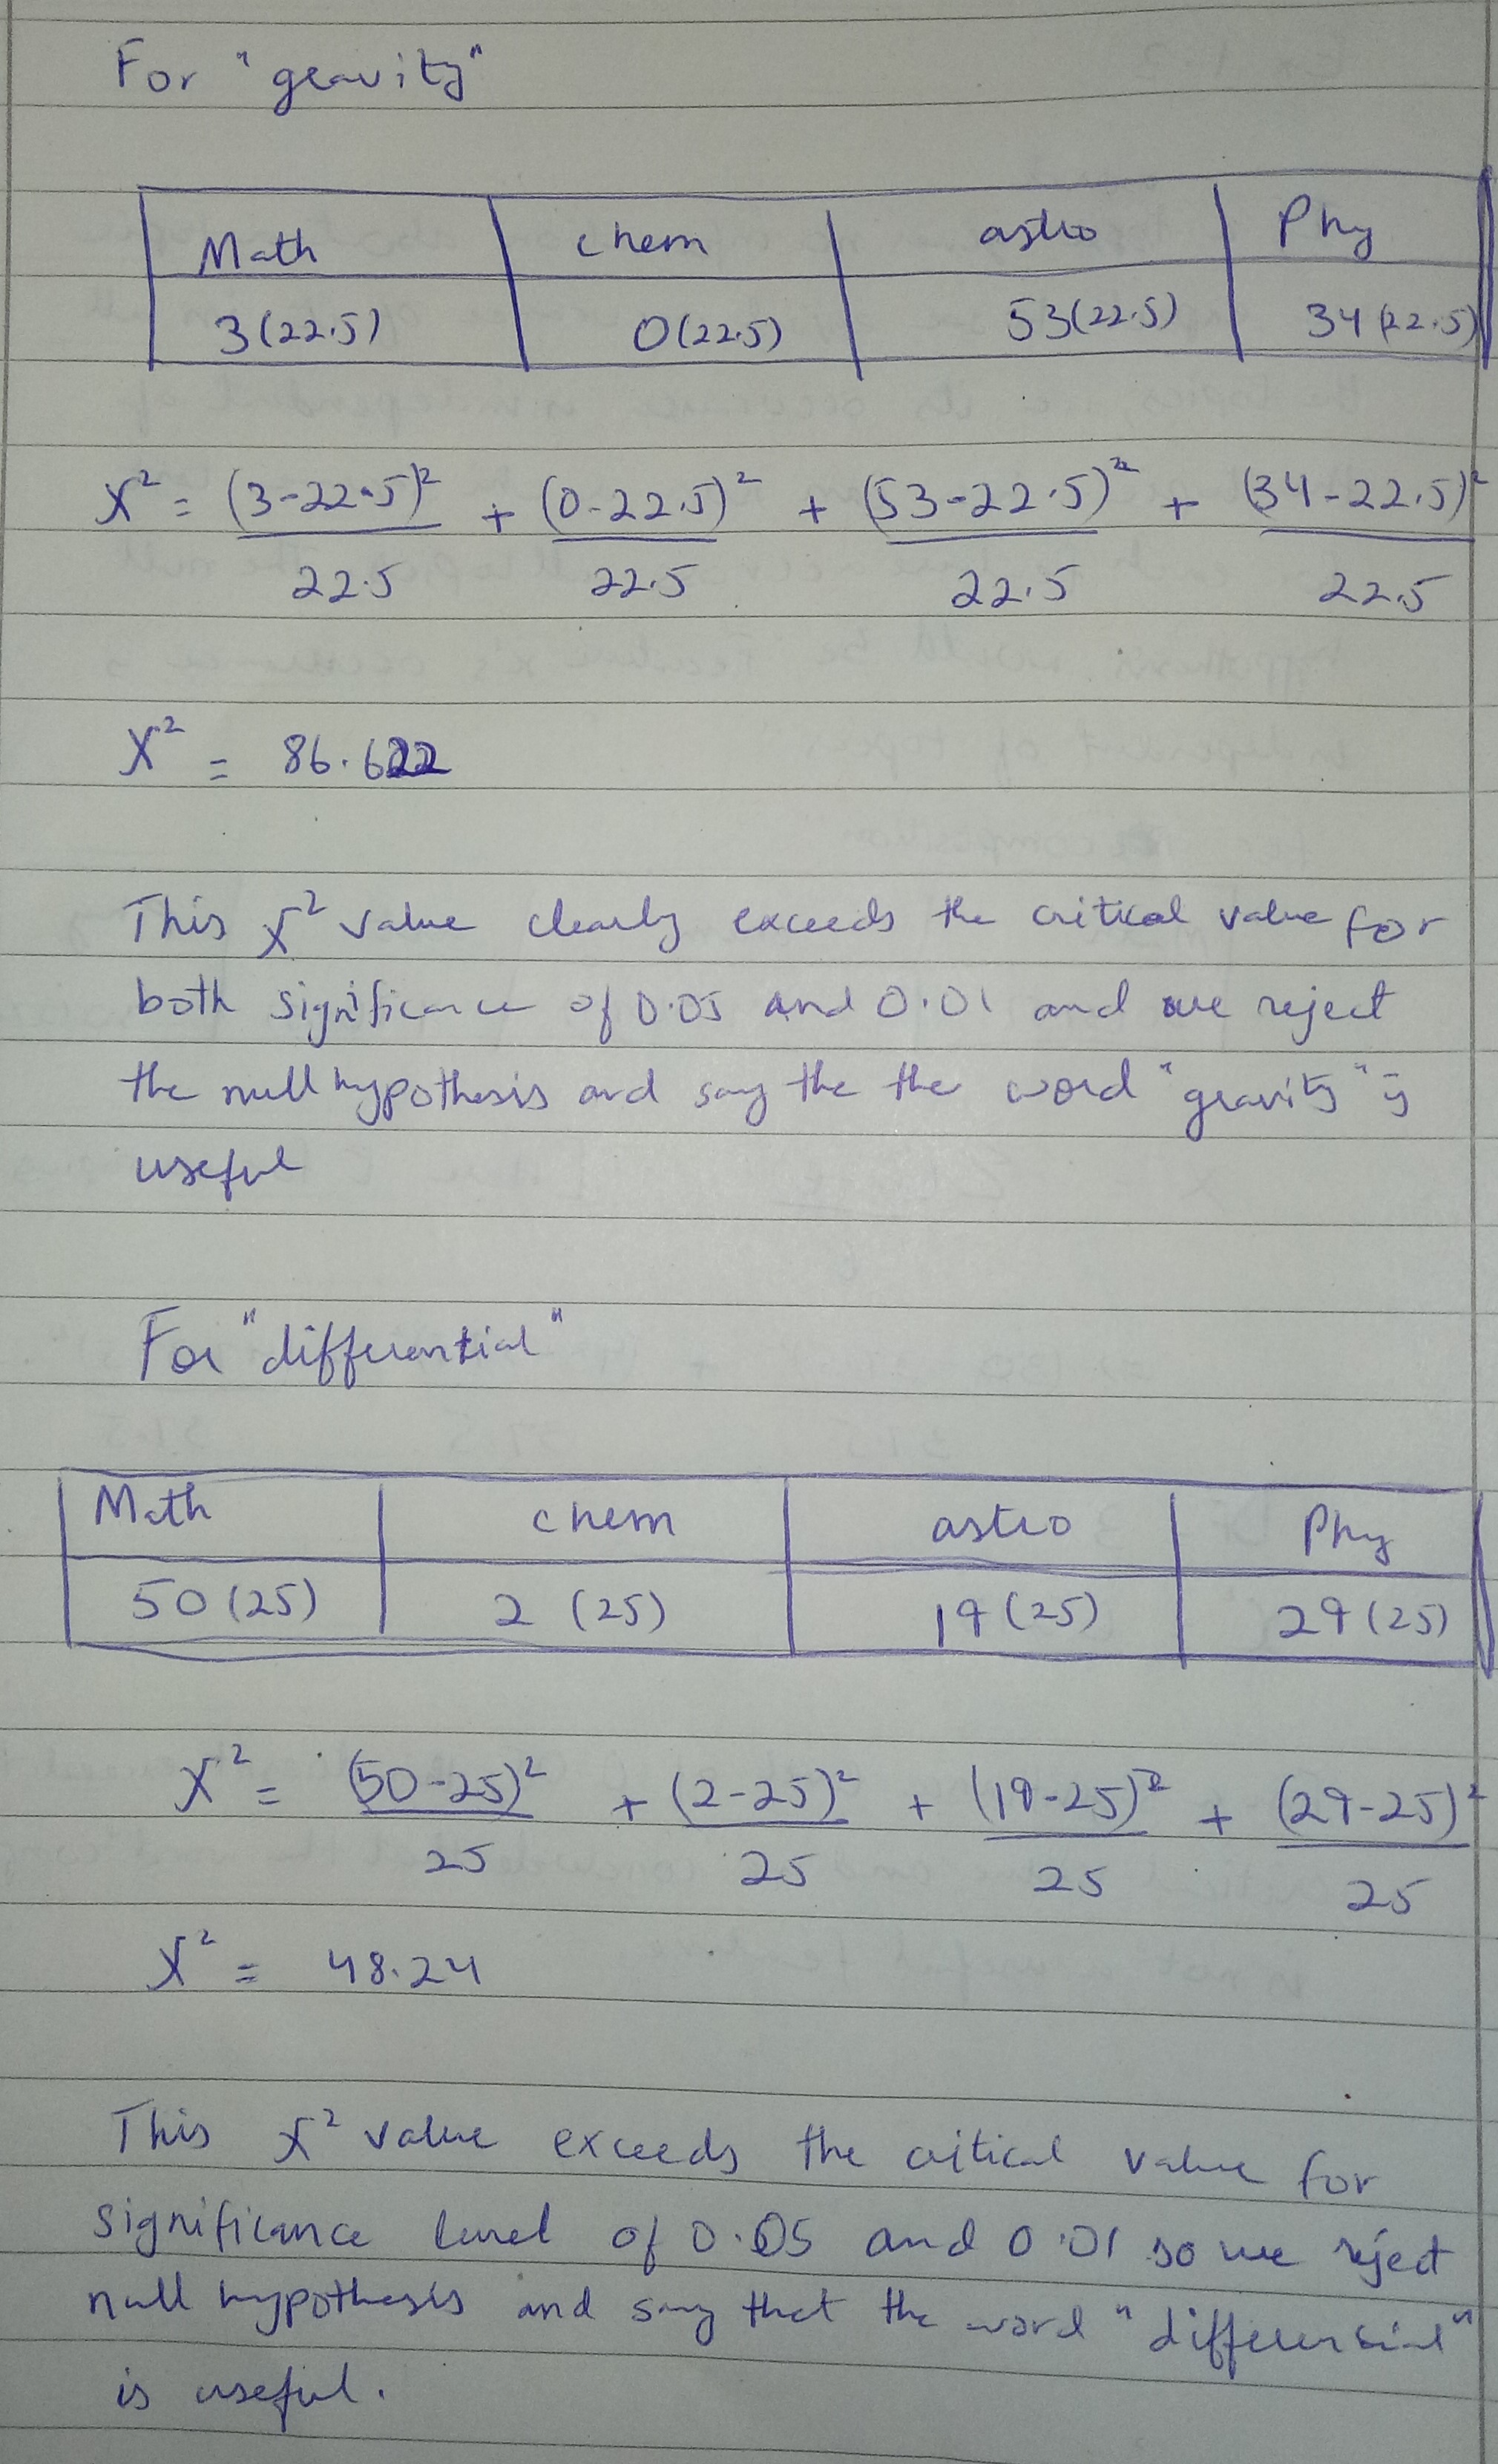 For "gravity"
Math chem astro Phy
3(22.5) 0(22.5) 53(22.5) 34(22.5)
X² = (3-22.5)² + (0-22.5)² + (53-22.5)² + (34-22.5)²
22.5 22.5 22.5 22.5
X² = 86.622
This X² value clearly exceeds the critical value for
both significance of 0.05 and 0.01 and we reject
the null hypothesis and say the the word "gravity" is
useful
For "differential"
Math chem astro Phy
50(25) 2 (25) 19(25) 29(25)
X² = (50-25)² + (2-25)² + (19-25)² + (29-25)²
25 25 25 25
X² = 48.24
This X² value exceeds the critical value for
significance level of 0.05 and 0.01 so we reject
null hypothesis and say that the word "differential"
is useful.